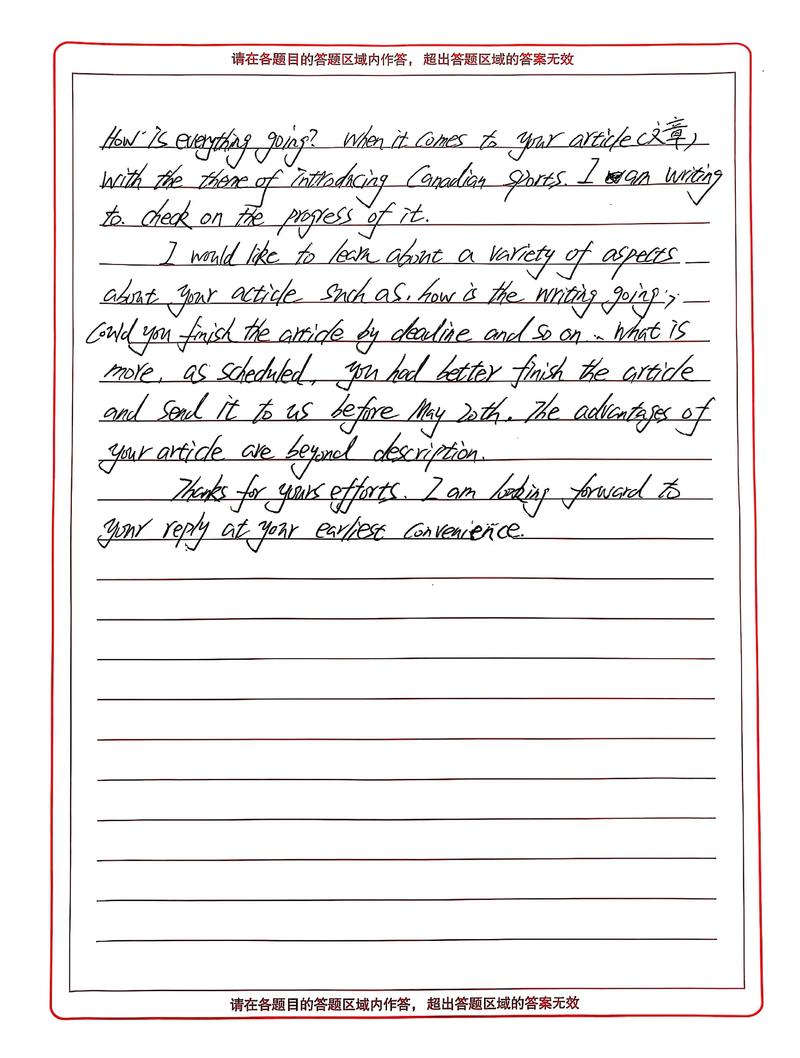 请在各题目的答题区域内作答，超出答题区域的答案无效
How is everything going? When it comes to your article (文章)
with the theme of introducing Canadian sports. I am writing
to check on the progress of it.
I would like to learn about a variety of aspects
about your acticle such as, how is the writing going;
Could you finish the article by deadline and so on. What is
more, as scheduled, you had better finish the article
and send it to us before May 20th. The advantages of
your article are beyond description.
Thanks for yours efforts. I am looking forward to
your reply at your earliest convenience.
请在各题目的答题区域内作答，超出答题区域的答案无效